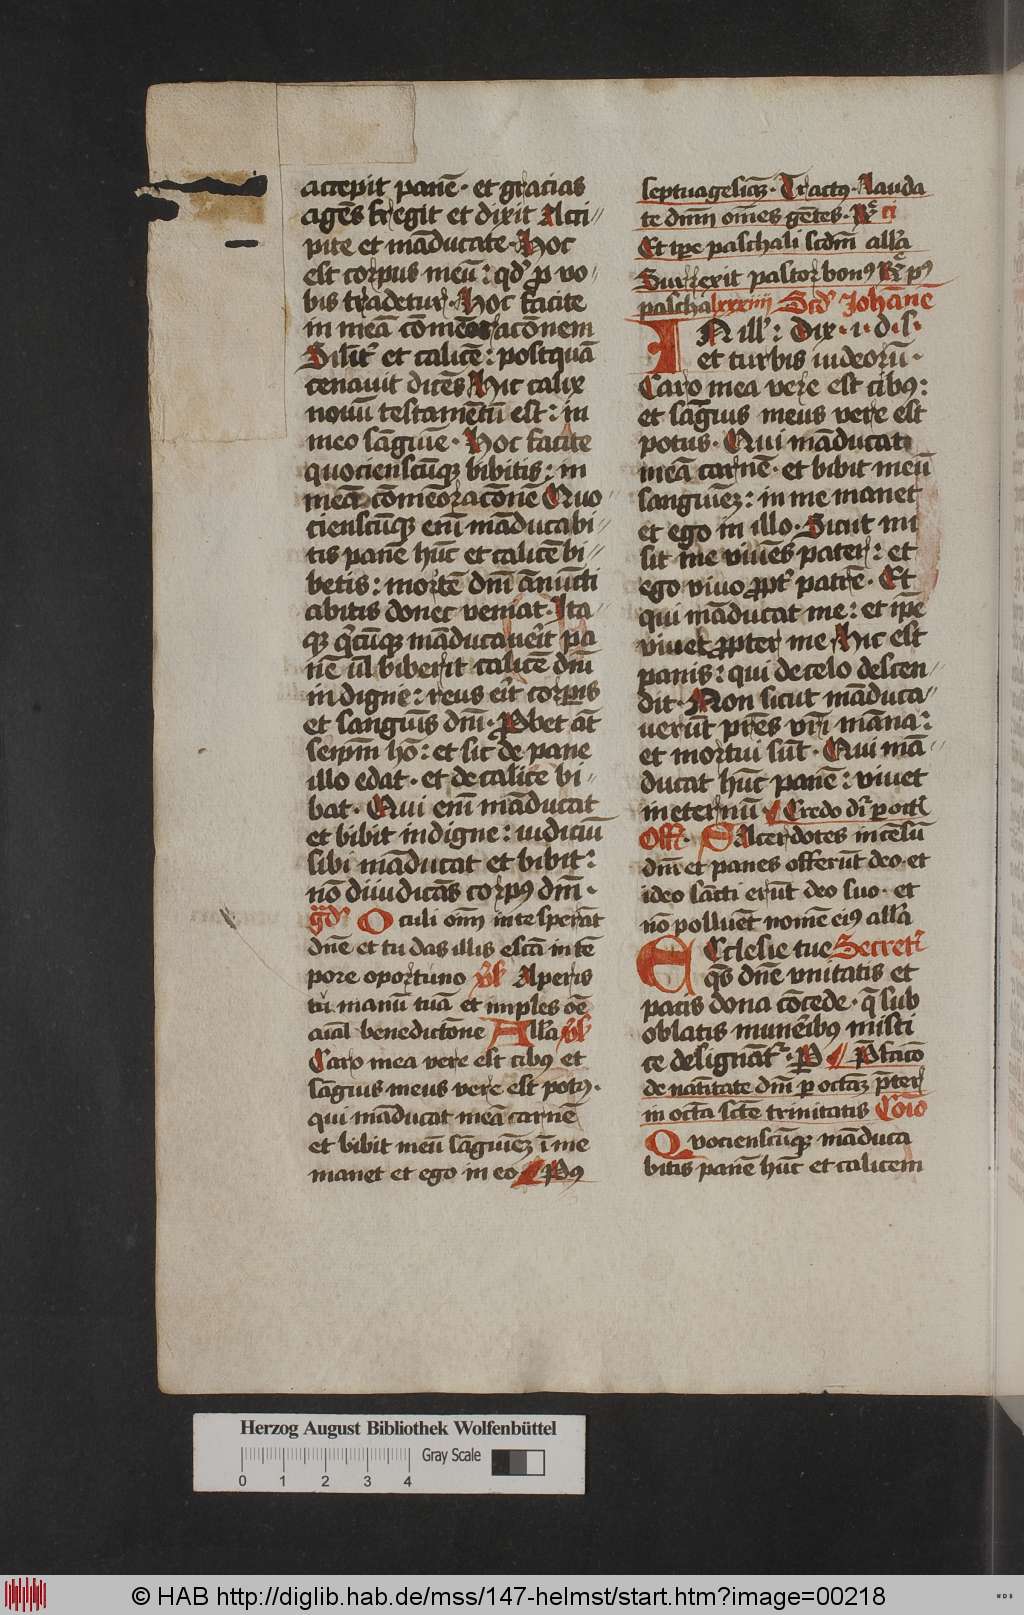 accepit panē · et gracias
agēs fregit et dixit Acci
pite et māducate · Hoc
est corpus meū : qd' p vo
bis tradetur · Hoc facite
in meā cōmēoracōnem
Silit' et calicē : postquā
cenauit dicēs Hic calix
nouū testamētū est : in
meo sāguīe · Hoc facite
quociensciūqz bibitis : in
meā cōmeōracōnē Quo
ciensciūqz enī māducabi
tis panē hūc et calicē bi
betis : mortē dnī ānūcti
abitis donec veniat · Ita
qz qcūqz māducauerit pa
nē ul' biberit calicē dnī
indigne : reus erit corpis
et sanguīs dnī · Pbet āt
seipm hō : et sic de pane
illo edat · et de calice bi
bat · Qui enī māducat
et bibit indigne : iudiciū
sibi māducat et bibit :
nō diiudicās corpꝰ dnī ·
gd' Oculi oīm in te sperāt
dnē et tu das illis escā in tē
pore oportuno vl' Aperis
tu manū tuā et imples oē
aīal benedictōne All'a vl'
Caro mea vere est cibꝰ et
sāgius meus vere est potꝰ ·
qui māducat meā carnē
et bibit meū sāguīez ī me
manet et ego in eo · Pꝰ
septuagesiaz · Tractꝰ · Lauda
te dnm om̄es gētes · R' ci
Et tpe paschali scdm all'a
Surrexit pastor bonꝰ R' pꝰ
pascha lxxxiiii Scd' Johānē
IN ill' : Dix · i · d · s ·
et turbis iudeorū ·
Caro mea vere est cibꝰ :
et sāgius meus vere est
potus · Qui māducat
meā carnē · et bibit meū
sanguīez : in me manet
et ego in illo · Sicut mi
sit me viuēs pater : et
ego viuo ppt' patrē · Et
qui māducat me : et ipē
viuet ppter me Hic est
panis : qui de celo descen
dit · Non sicut māduca
uerūt prēs vrī māna :
et mortui sūt · Qui mā
ducat hūc panē : viuet
in eternū · Credo dr p oct
Off. Sacerdotes incēsū
dnī et panes offerūt deo · et
ideo sācti erūt deo suo · et
nō polluēt nomē eiꝰ all'a
Ecclesie tue Secret'
qs dnē vnitatis et
pacis dona cōcede · q sub
oblatis munēibꝰ misti
ce designāt' · P Pfacō
de natītate dnī p octāz pter
in octa scte trinitatis Cōīo
Quociensciūqz māduca
bitis panē hūc et calicem
Herzog August Bibliothek Wolfenbüttel
Gray Scale
0 1 2 3 4
© HAB http://diglib.hab.de/mss/147-helmst/start.htm?image=00218